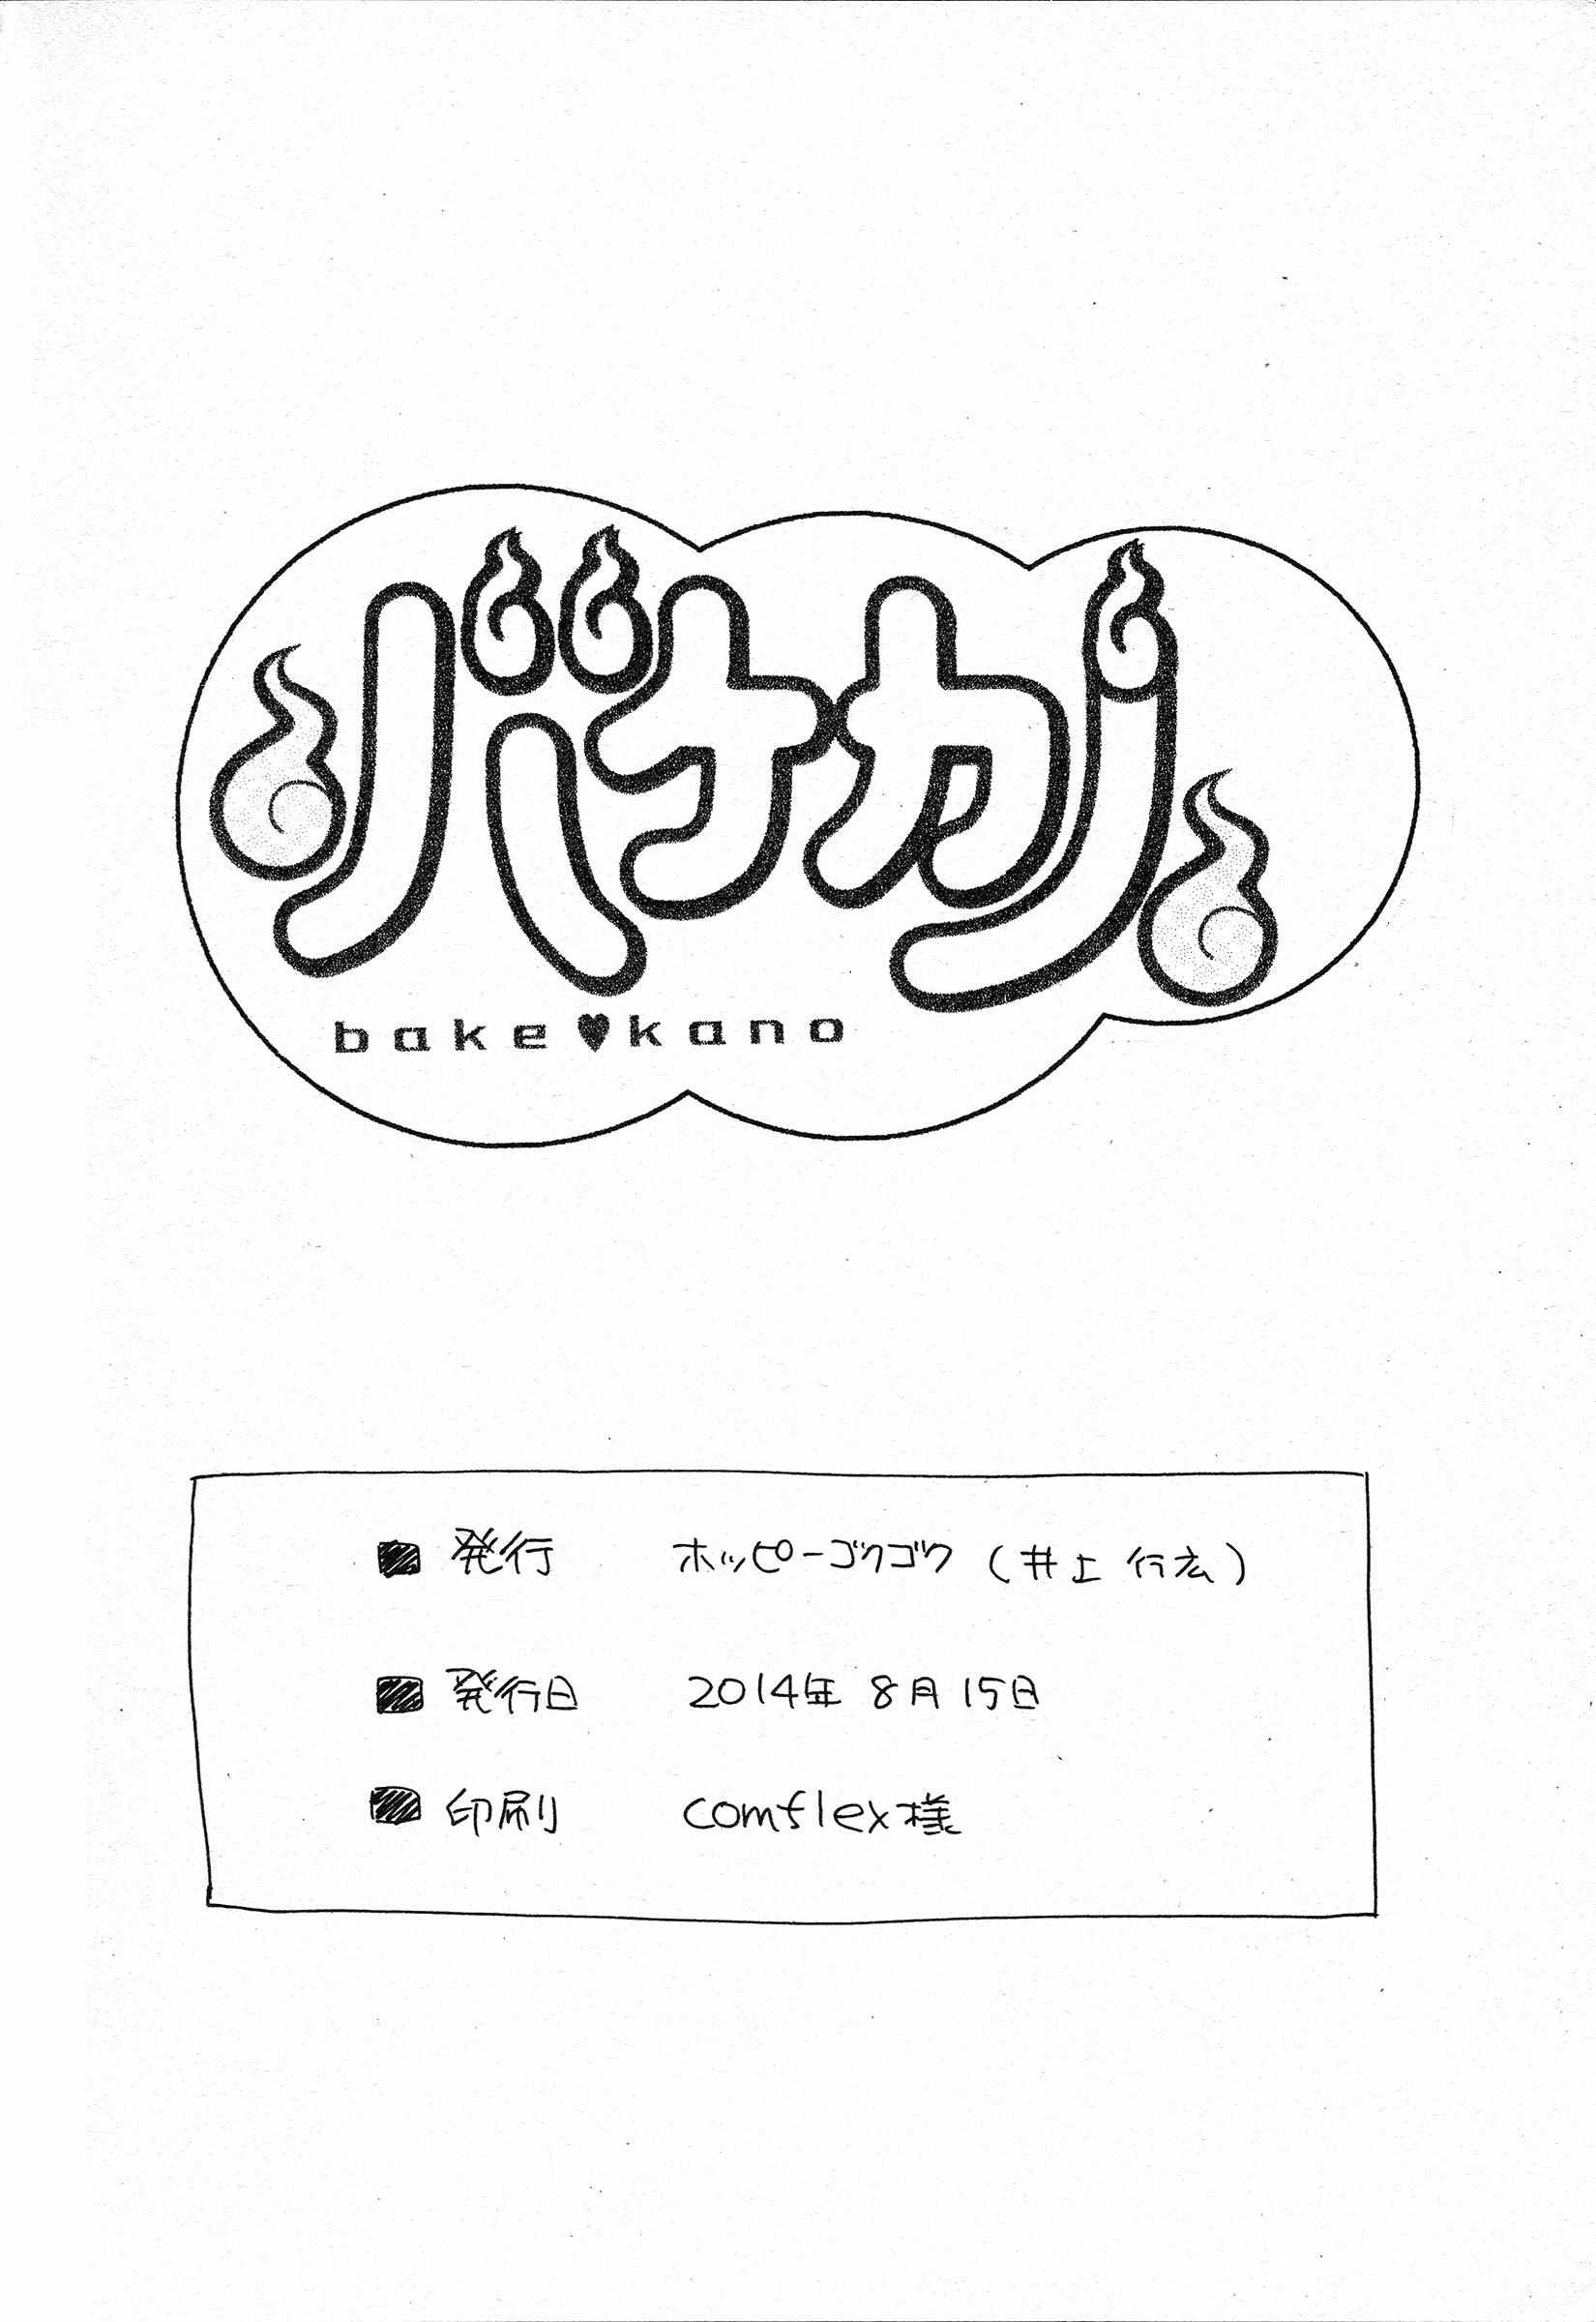 バケカノ
bake♥kano
■ 発行 ホッピーゴクゴク (井上 行広)
■ 発行日 2014年 8月 15日
■ 印刷 comflex様